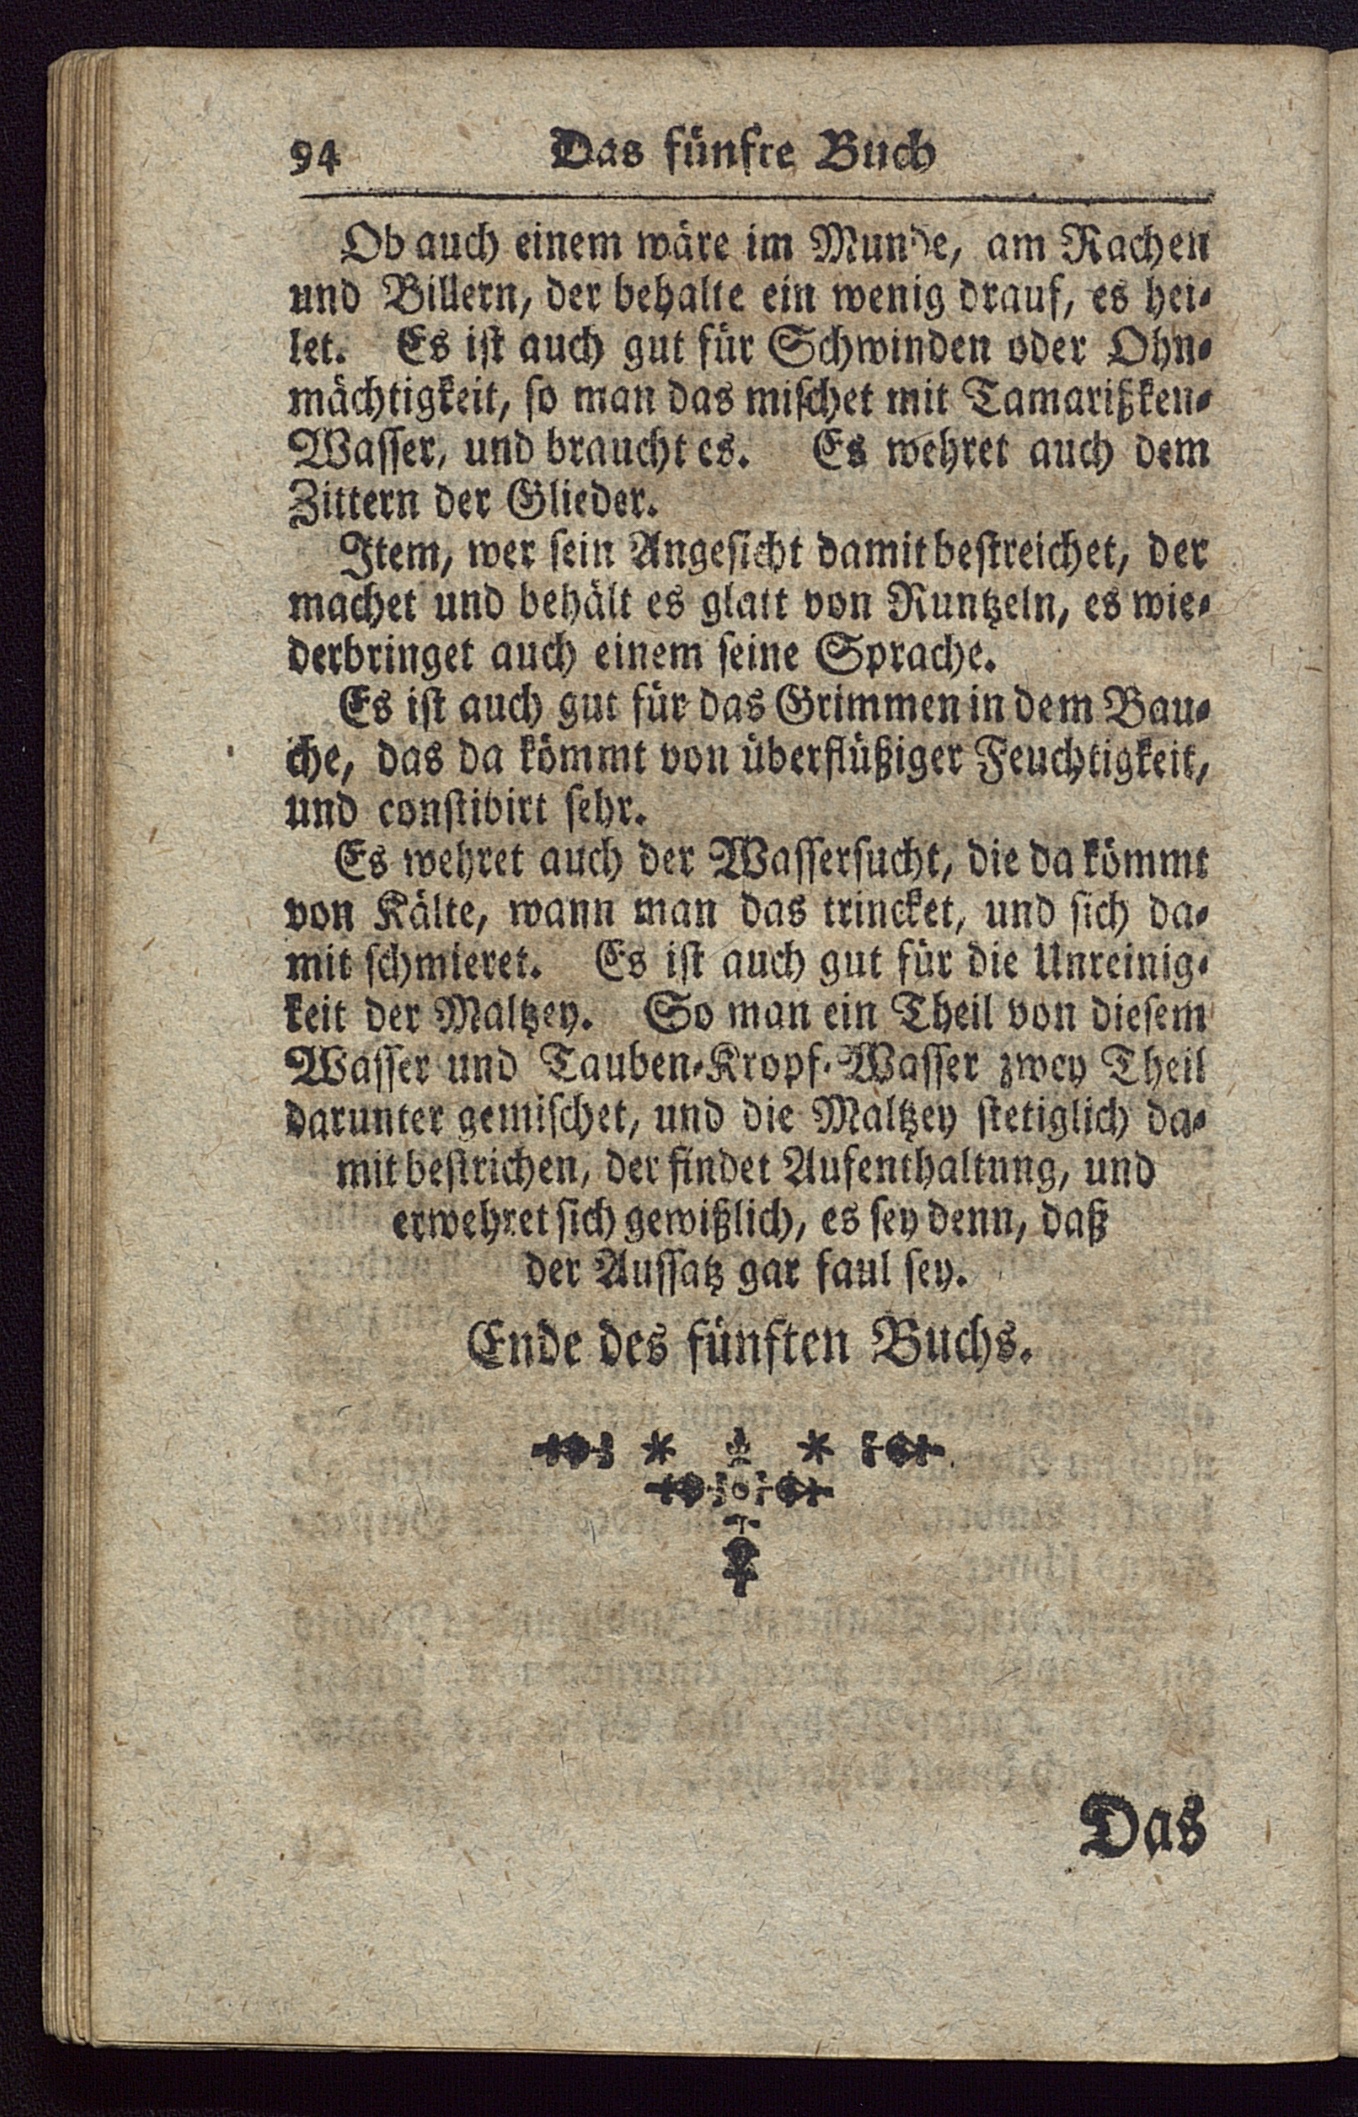 94 Das fünfte Buch
Ob auch einem wäre im Munde, am Rachen
und Billern, der behalte ein wenig drauf, es hei-
let. Es ist auch gut für Schwinden oder Ohn-
mächtigkeit, so man das mischet mit Tamarißken-
Wasser, und braucht es. Es wehret auch dem
Zittern der Glieder.
Item, wer sein Angesicht damit bestreichet, der
machet und behält es glatt von Runtzeln, es wie-
derbringet auch einem seine Sprache.
Es ist auch gut für das Grimmen in dem Bau-
che, das da kömmt von überflüßiger Feuchtigkeit,
und constibirt sehr.
Es wehret auch der Wassersucht, die da kömmt
von Kälte, wann man das trincket, und sich da-
mit schmieret. Es ist auch gut für die Unreinig-
keit der Maltzey. So man ein Theil von diesem
Wasser und Tauben-Kropf-Wasser zwey Theil
darunter gemischet, und die Maltzey stetiglich da-
mit bestrichen, der findet Aufenthaltung, und
erwehret sich gewißlich, es sey denn, daß
der Aussatz gar faul sey.
Ende des fünften Buchs.
Das